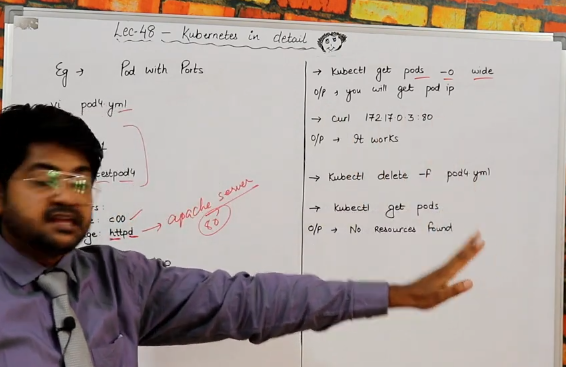 Lec-48 - Kubernetes in detail
Eg → Pod with Ports
vi pod4 yml
testpod4
: c00
ge: httpd → apache server
80
→ Kubectl get pods -o wide
O/P → you will get pod ip
→ Curl 172 17 0 3 : 80
O/P → It works
→ Kubectl delete -f pod4 yml
→ Kubectl get pods
O/P → No Resources found